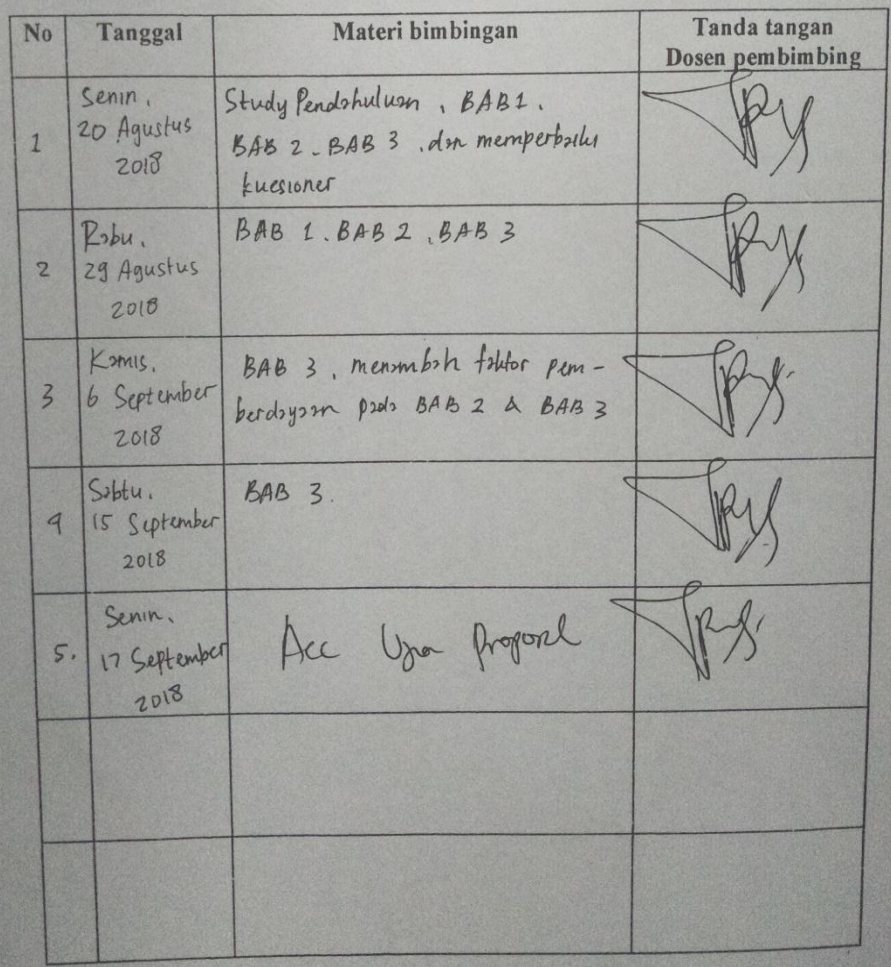 No Tanggal Materi bimbingan Tanda tangan
Dosen pembimbing
1
Senin,
20 Agustus
2018
Study Pendahuluan, BAB 1,
BAB 2, BAB 3, dan memperbaiki
kuesioner
2
Rabu,
29 Agustus
2018
BAB 1, BAB 2, BAB 3
3
Kamis,
6 September
2018
BAB 3, menambah faktor pem-
berdayaan pada BAB 2 & BAB 3
4
Sabtu,
15 September
2018
BAB 3.
5.
Senin,
17 September
2018
Acc Ujian Proposal